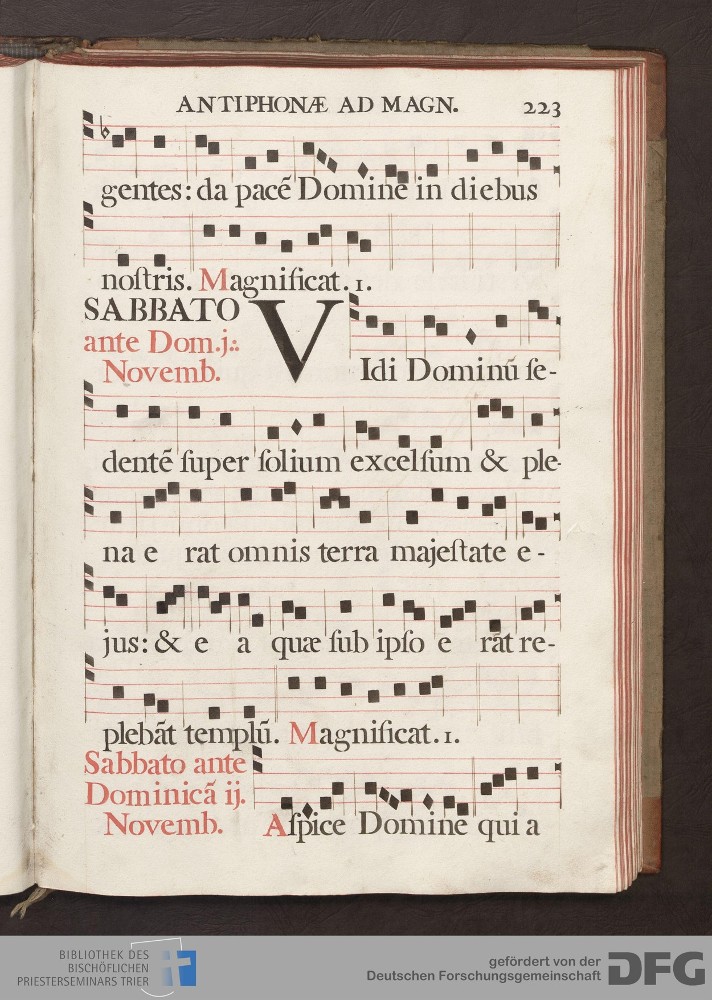 ANTIPHONÆ AD MAGN. 223
gentes: da pacē Domine in diebus
noſtris. Magnificat. 1.
SABBATO
ante Dom. j.
Novemb.
VIdi Dominū ſe-
dentē ſuper ſolium excelſum & ple-
na e rat omnis terra majeſtate e-
jus: & e a quæ ſub ipſo e rāt re-
plebāt templū. Magnificat. 1.
Sabbato ante
Dominicā ij.
Novemb.
Aſpice Domine qui a
BIBLIOTHEK DES
BISCHÖFLICHEN
PRIESTERSEMINARS TRIER
gefördert von der
Deutschen Forschungsgemeinschaft
DFG